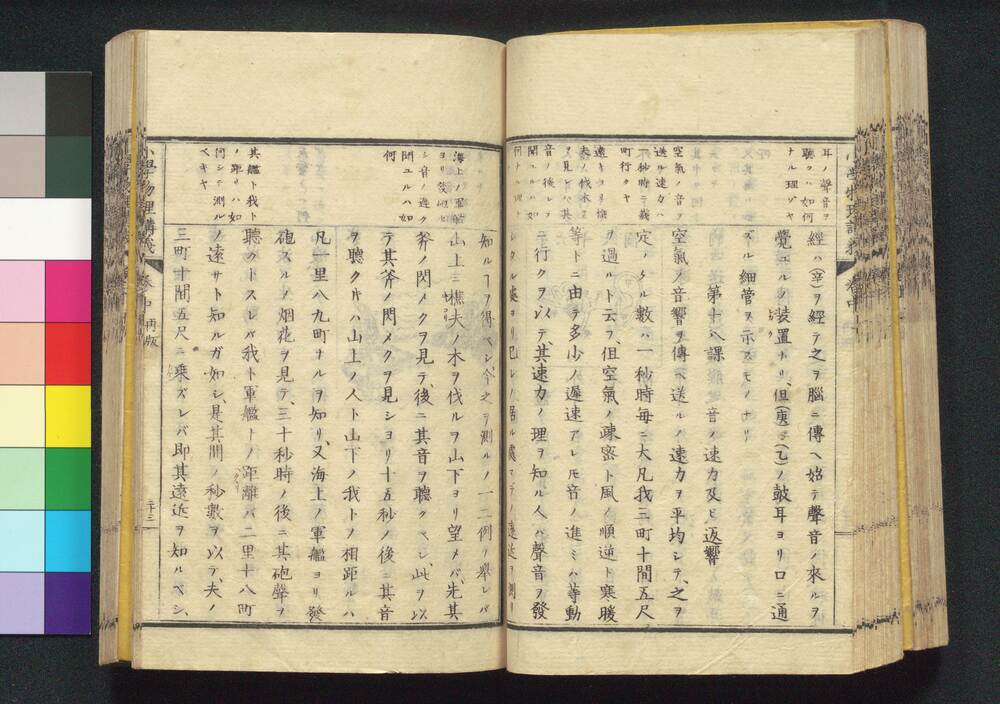 耳ノ聲音ヲ
聽クハ如何
ナル理ゾヤ
空氣ノ音ヲ
送ル速力ハ
一秒時ニ幾
町行クヤ
遠キヨリ樵
夫ノ伐木ス
ルヲ見ルハ其
音ノ後レテ
聞ユルハ如
何ナル理ゾ
經ハ(辛)ヲ經テ之ヲ腦ニ傳ヘ始テ聲音ノ來ルヲ
覺ユルノ装置ナリ、但(庚)ヨリ(乙)ノ鼓耳ヨリ口ニ通
ズル細管ヲ示スモノナリ
第十八課 音ノ速力及ビ返響
空氣ノ音響ヲ傳ヘ送ルノ速力ヲ平均シテ、之ヲ
定ムル數ハ一秒時毎ニ大凡我三町十間五尺
ヲ過ルト云フ、但空氣ノ疎密ト風ノ順逆ト寒暖
等トニ由テ多少ノ遲速アレ𪜈音ノ進ミハ等動
ニ行クヲ以テ、其速力ノ理ヲ知ル人ハ聲音ヲ發
海上ノ軍艦
ヨリ發砲ヒ
シ音ノ遠ク
聞ユルハ如
何
其艦ト我ト
ノ距リハ如
何シテ測ル
ベキヤ
知ルヿヲ得ベシ、今之ヲ測ルノ一二例ヲ舉レバ
山上ニ樵夫ノ木ヲ伐ルヲ山下ヨリ望メバ、先其
斧ノ閃メクヲ見テ、後ニ其音ヲ聽クベシ、此ヲ以
テ其斧ノ閃メクヲ見シヨリ十五秒ノ後ニ其音
ヲ聽クキハ山上ノ人ト山下ノ我トノ相距ルハ
凡一里八九町ナルヲ知リ、又海上ノ軍艦ヨリ發
砲スルノ烟花ヲ見テ、三十秒時ノ後ニ其砲聲ヲ
聽クトスレバ我ト軍艦トノ距離ハ二里十八町
ノ遠サト知ルガ如シ、是其間ノ秒數ヲ以テ、夫ノ
三町十間五尺ニ乘ズレバ即其遠近ヲ知ルベシ、
小學物理講義 卷中 再版
二十三